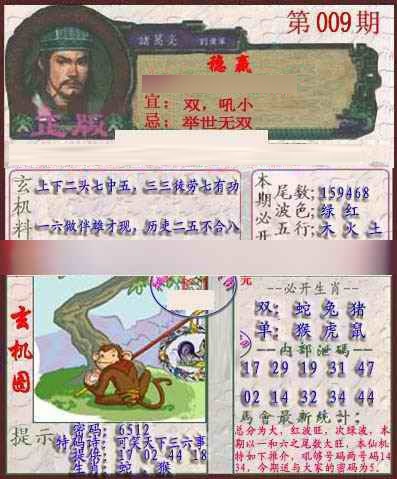 第009期
諸葛亮
稳赢
宜：双，吼小
忌：举世无双
正版
玄机料
上下二头七中五，三三徒劳七有功
一六做伴雄才现，历史二五不合八
本期必开
尾数：159468
波色：绿 红
五行：木 火 土
玄机图
--必开生肖--
双：蛇 兔 猪
单：猴 虎 鼠
--内部泄码--
17 29 19 31 47
02 14 32 34 44
马會最新统计：
总分为大，红波旺，次绿波，本
期以一和六之尾数大旺，本仙机
特如下推介，吼够号码两号码14
34，今期送与大家的密码为5．
提示
密码：6512
特码诗：可笑天下三六事
提供：17 02 44 18
生肖：蛇、猴